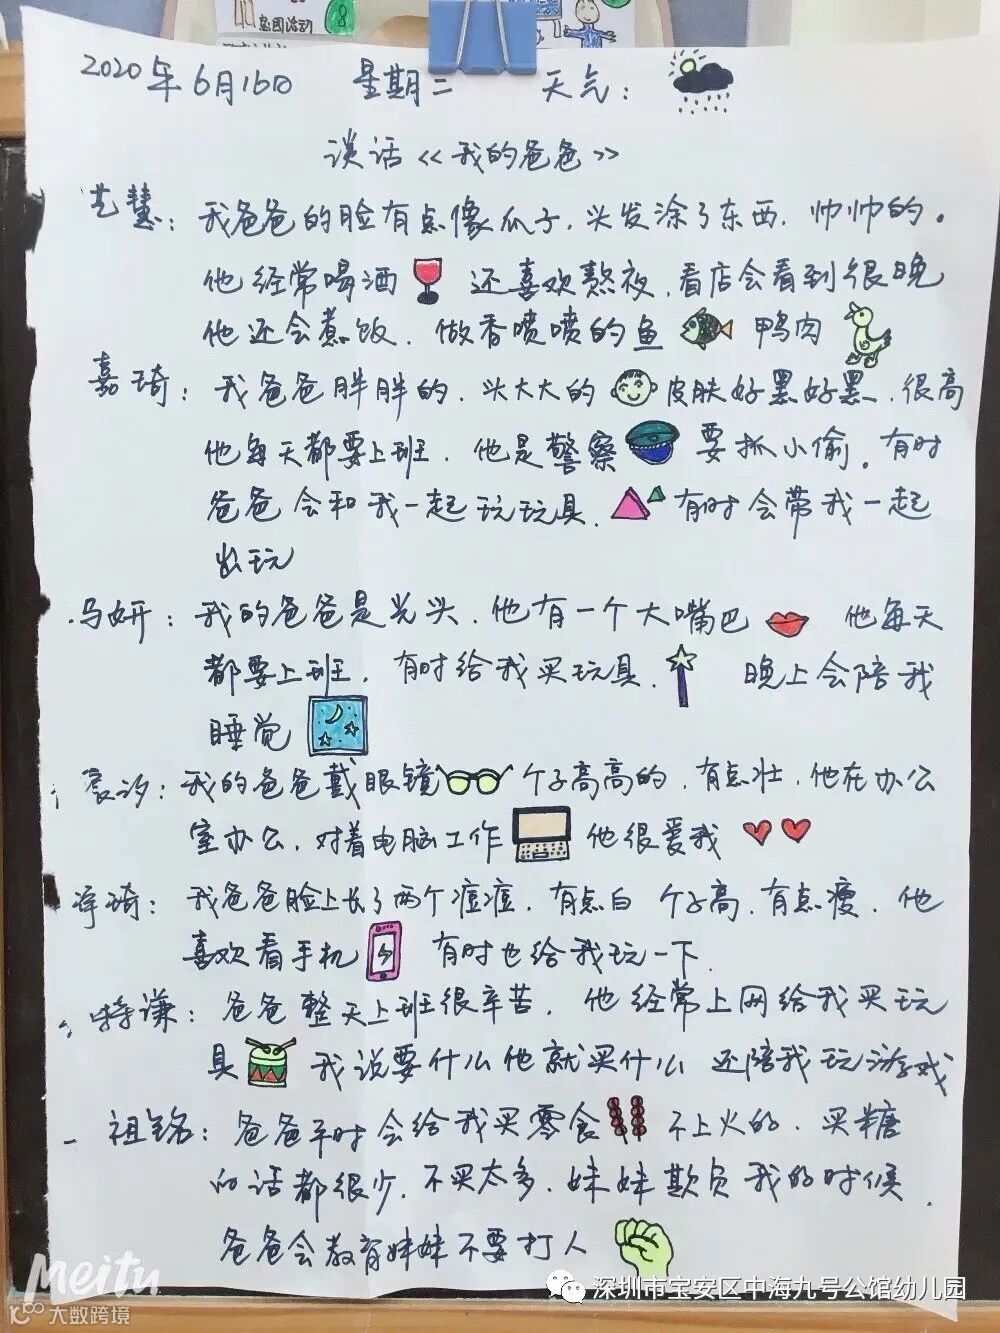 息园活动
8
2020年6月16日 星期二 天气：
谈话《我的爸爸》
艺慧：我爸爸的脸有点像瓜子，头发涂了东西，帅帅的。
他经常喝酒 还喜欢熬夜，看店会看到很晚
他还会煮饭，做香喷喷的鱼 鸭肉
嘉琦：我爸爸胖胖的，头大大的 皮肤好黑好黑，很高
他每天都要上班，他是警察 要抓小偷。有时
爸爸会和我一起玩玩具， 有时会带我一起
出玩
马妍：我的爸爸是光头，他有一个大嘴巴 他每天
都要上班，有时给我买玩具， 晚上会陪我
睡觉
宸汐：我的爸爸戴眼镜 个子高高的，有点壮，他在办公
室办公，对着电脑工作 他很爱我
琦：我爸爸脸上长了两个痘痘，有点白 个子高，有点瘦，他
喜欢看手机 有时也给我玩一下.
特谦：爸爸整天上班很辛苦，他经常上网给我买玩
具 我说要什么他就买什么 还陪我玩游戏
祖铭：爸爸平时会给我买零食 不上火的，买糖
的话都很少，不买太多，妹妹欺负我的时候，
爸爸会教育妹妹不要打人
Meitu
大数跨境
深圳市宝安区中海九号公馆幼儿园